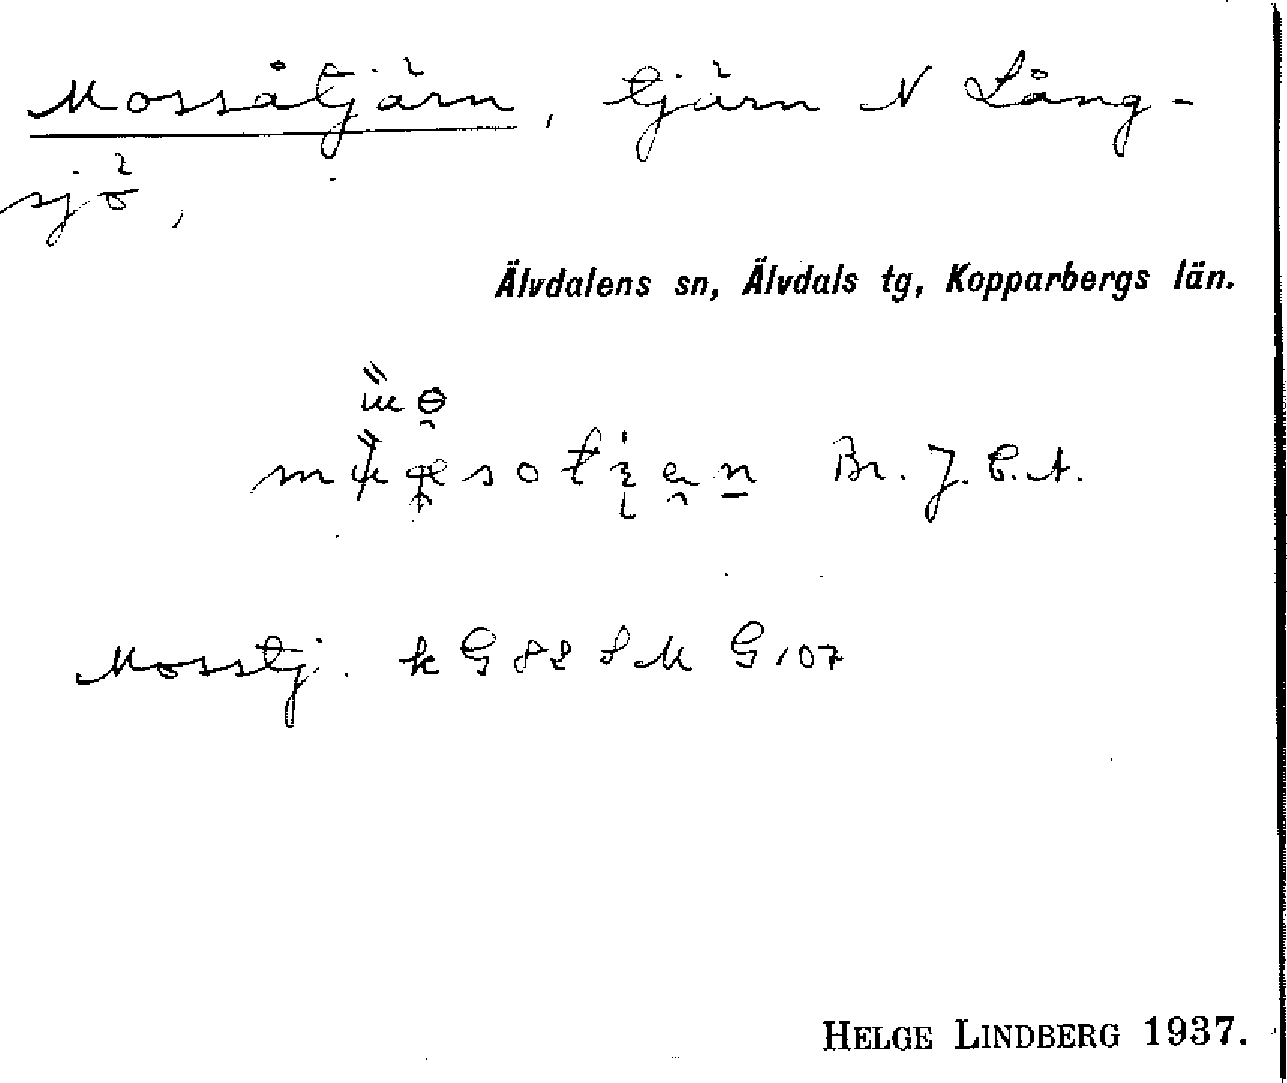 Mossåtjärn, tjärn N Lång-
sjö,
Älvdalens sn, Älvdals tg, Kopparbergs län.
Br. J. E. A.
Mosstj. k G 82 8 M G 107
HELGE LINDBERG 1937.